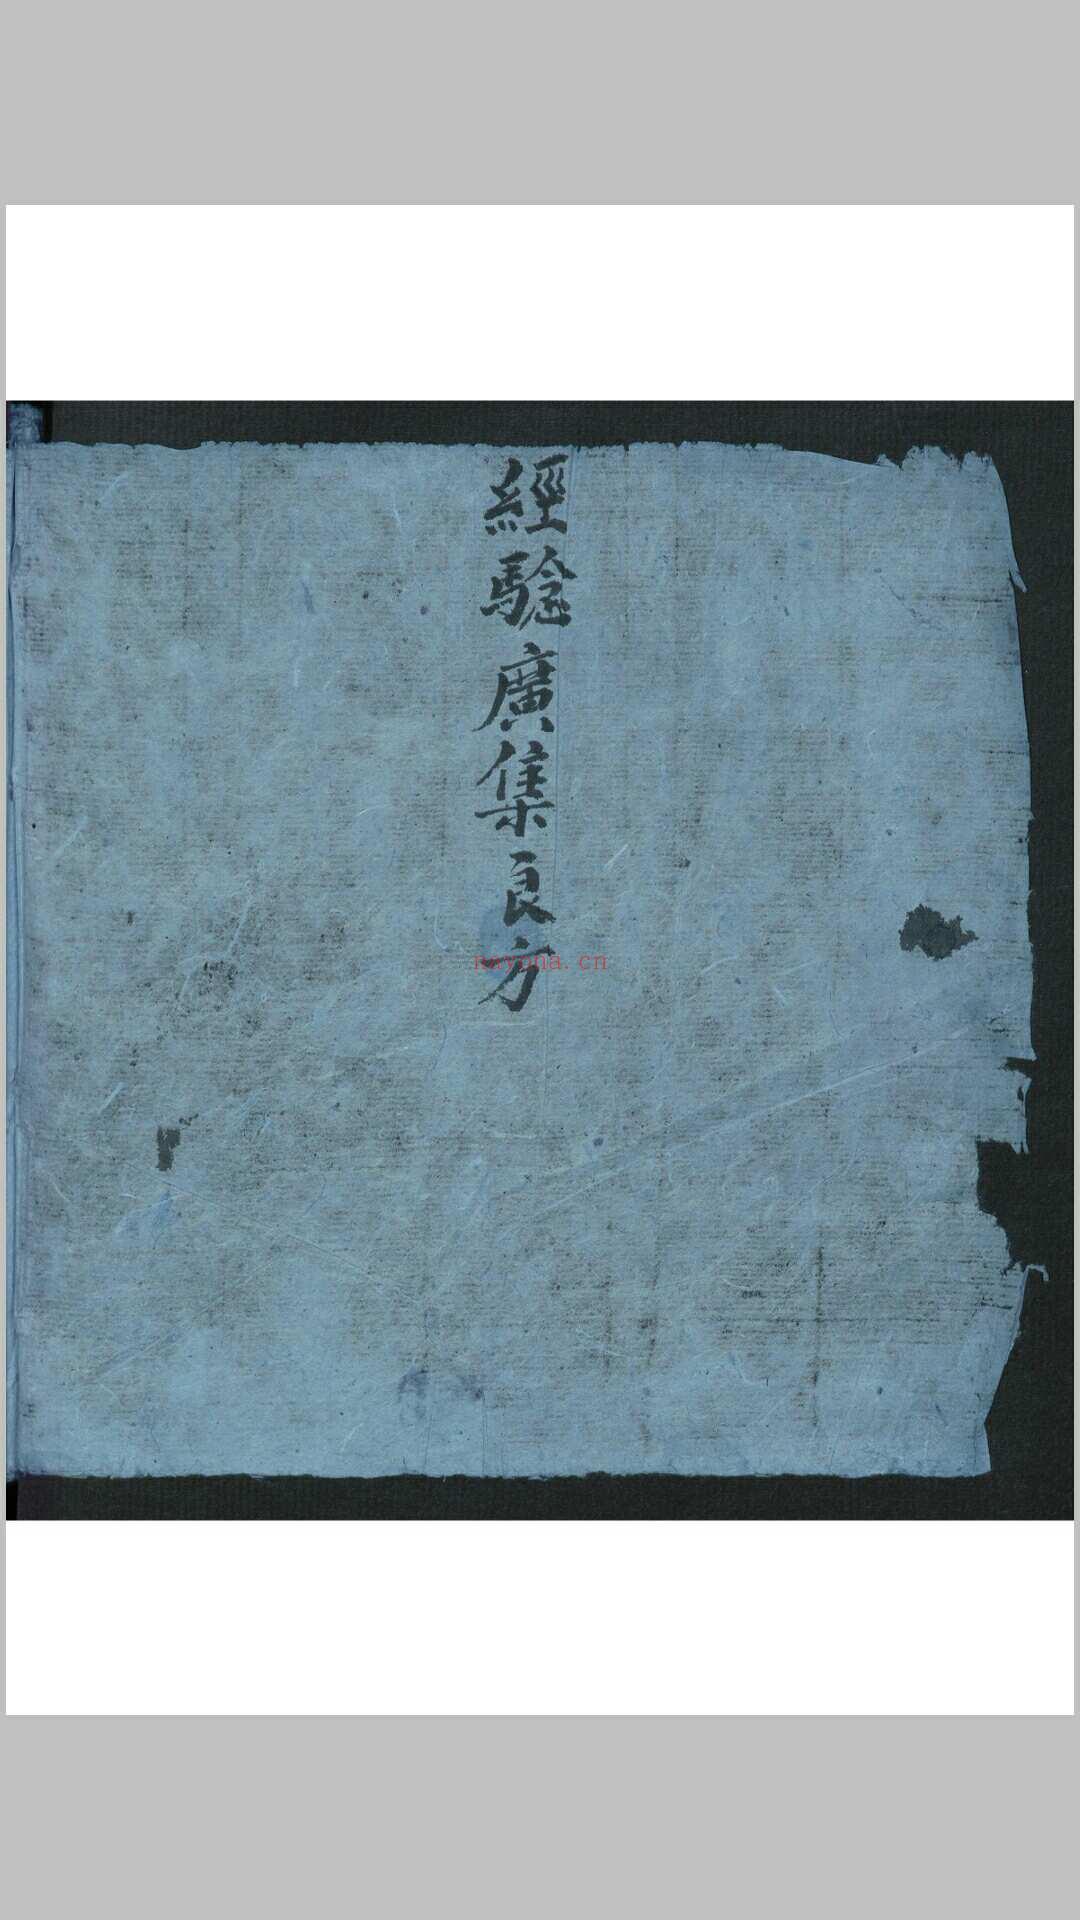 經騐廣集良方
nayona.cn